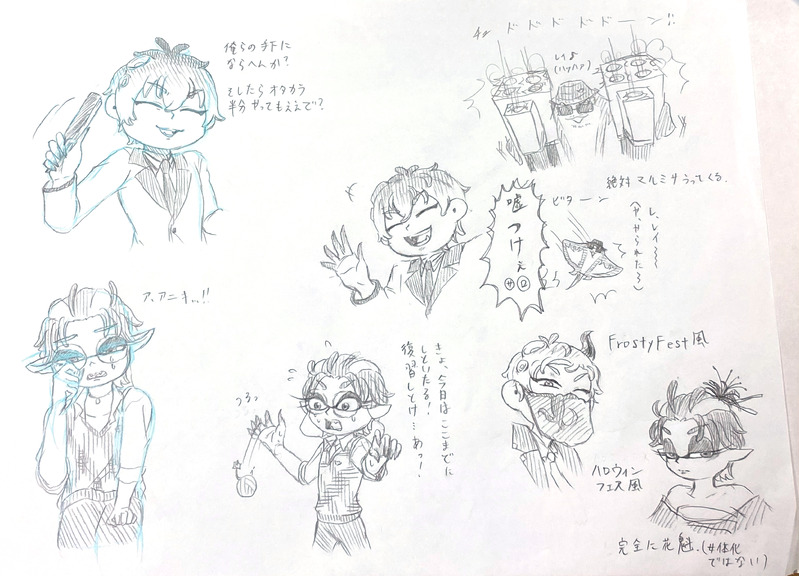 俺らの手下に
ならへんか?
そしたらオタカラ
半分やってもええで?
ドドドドドーン!!
(ハッハァ)
絶対マルミサうってくる.
嘘つけぇ
ビターン
レ、レイ〜〜
(や、やられた〜)
ア、アニキ...!!
つるっ
きょ、今日はここまでに
しといたる!
復習しとけ…あっ!
FrostyFest風
ハロウィン
フェス風
完全に花魁.(女体化
ではない)